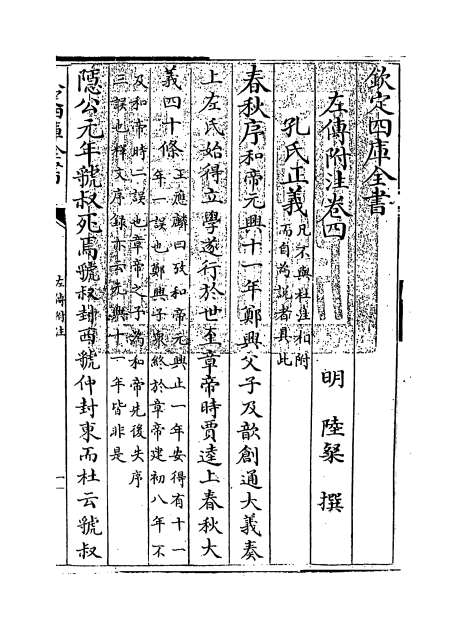 欽定四庫全書
左傳附注卷四 明 陸粲 撰
孔氏正義
凡不與杜注相附
而自為説者具此
春秋序和帝元興十一年鄭興父子及歆創通大義奏
上左氏始得立學遂行於世至章帝時賈逵上春秋大
義四十條
王應麟曰攷和帝元興止一年安得有十一
年一誤也鄭興子衆終於章帝建初八年不
及和帝時二誤也章帝之子為和帝先後失序
三誤也釋文序録亦云元興十一年皆非是
隱公元年虢叔死焉虢叔封西虢仲封東而杜云虢叔
左傳附注